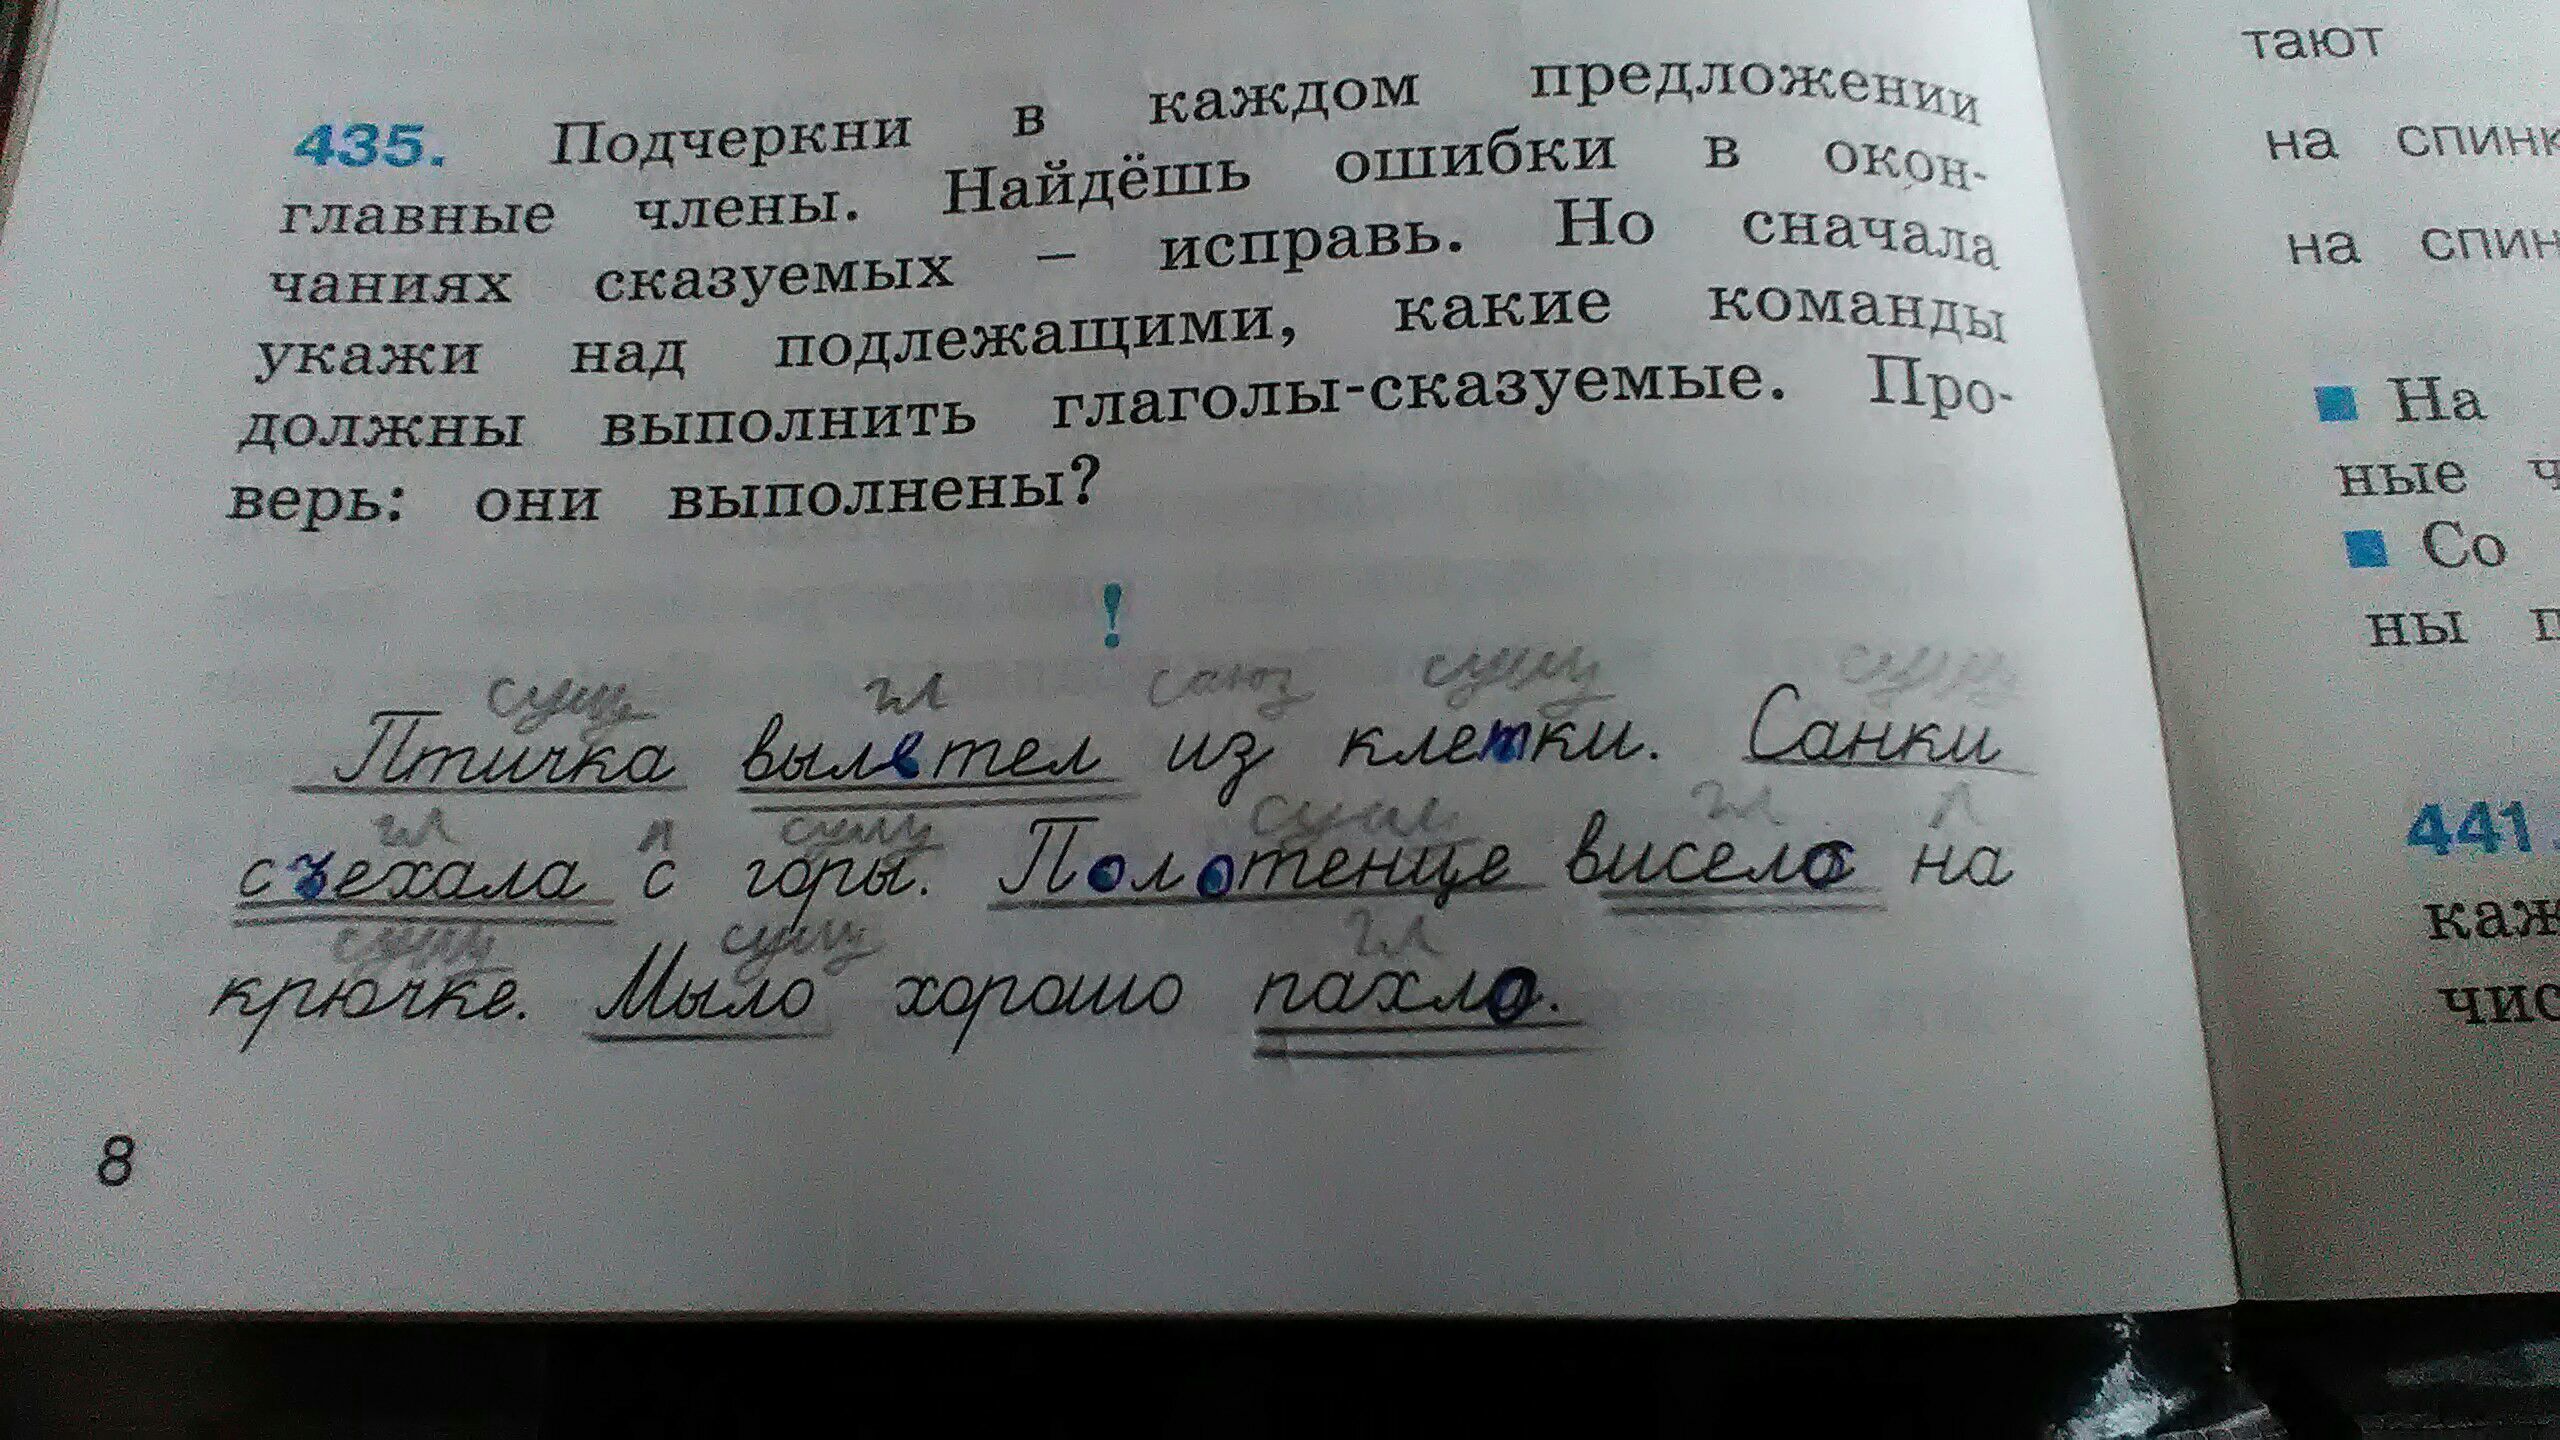 435. Подчеркни в каждом предложении
главные члены. Найдёшь ошибки в окон-
чаниях сказуемых – исправь. Но сначала
укажи над подлежащими, какие команды
должны выполнить глаголы-сказуемые. Про-
верь: они выполнены?
!
сущ гл союз сущ сущ
Птичка вылетел из клетки. Санки
гл п сущ сущ гл п
съехала с горы. Полотенце висело на
сущ сущ гл
крючке. Мыло хорошо пахло.
8
тают
на спинк
на спин
На
ные ч
Со
ны п
441.
каж
чис